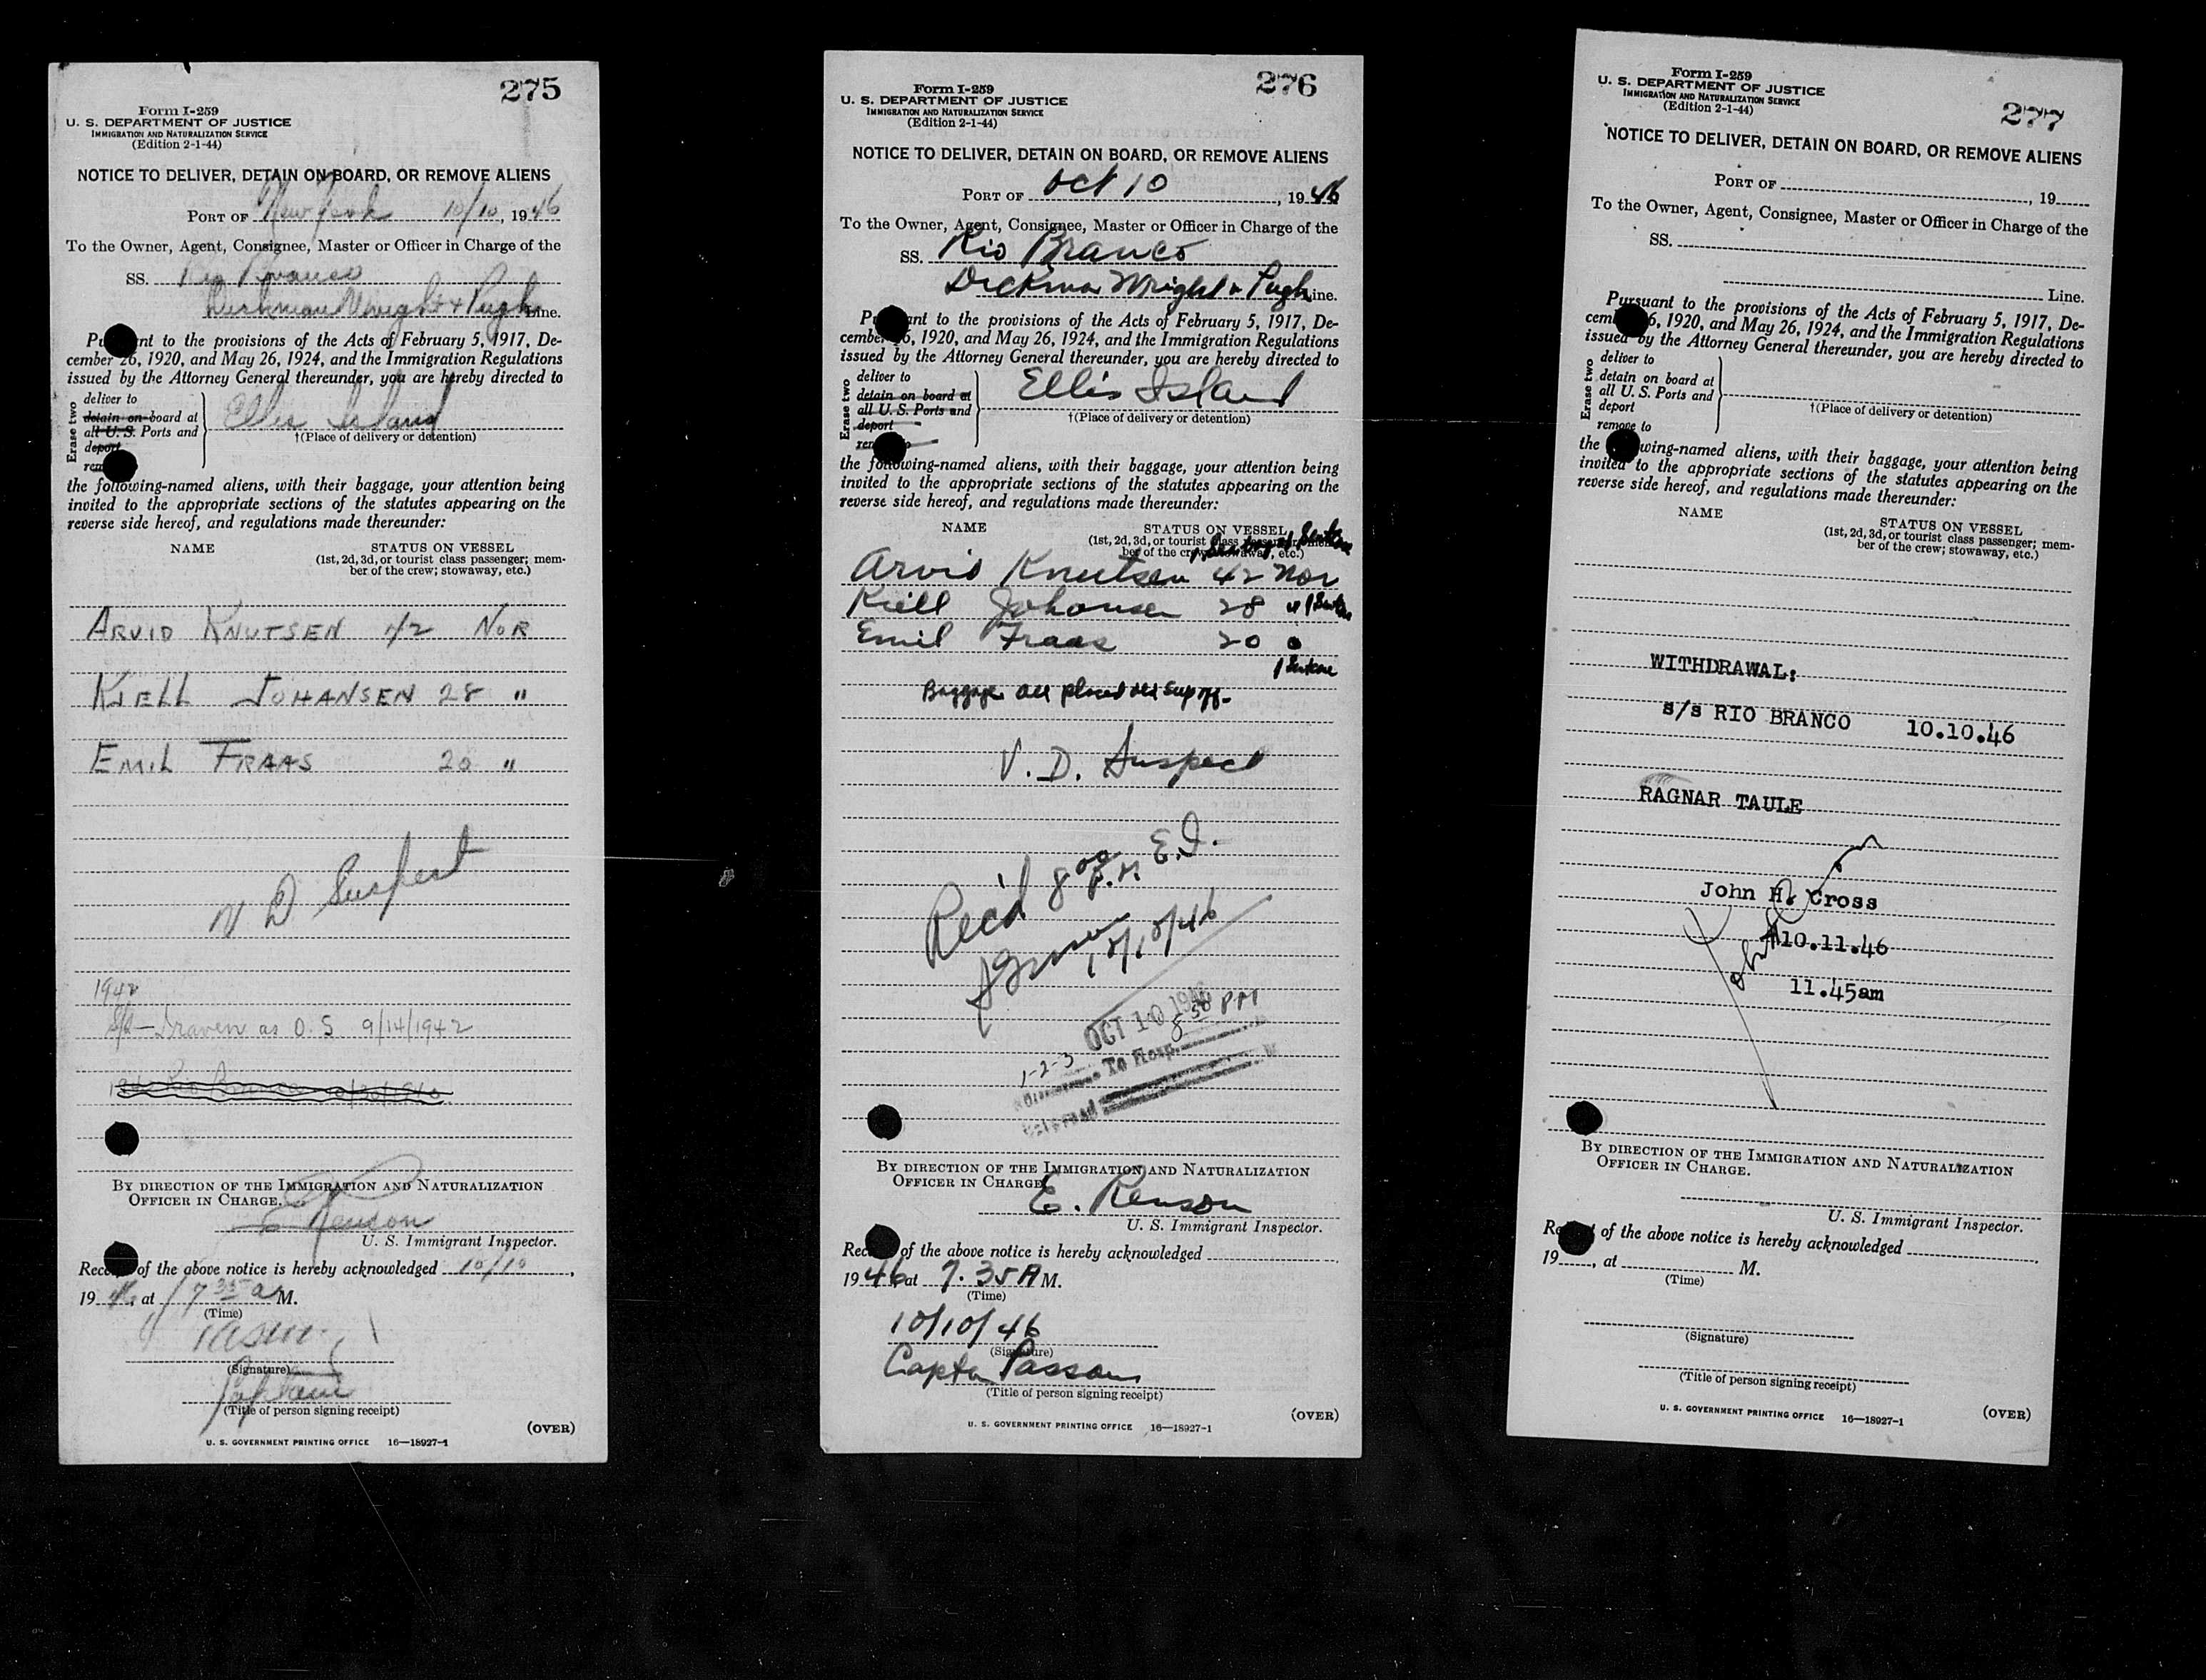 275
Form I-259
U. S. DEPARTMENT OF JUSTICE
IMMIGRATION AND NATURALIZATION SERVICE
(Edition 2-1-44)
NOTICE TO DELIVER, DETAIN ON BOARD, OR REMOVE ALIENS
PORT OF New York 10/10, 1946
To the Owner, Agent, Consignee, Master or Officer in Charge of the
SS. Rio Branco
Wright & Pugh Line.
Pursuant to the provisions of the Acts of February 5, 1917, De-
cember 26, 1920, and May 26, 1924, and the Immigration Regulations
issued by the Attorney General thereunder, you are hereby directed to
Erase two
deliver to
detain on board at
all U. S. Ports and
deport
Ellis Island
†(Place of delivery or detention)
the following-named aliens, with their baggage, your attention being
invited to the appropriate sections of the statutes appearing on the
reverse side hereof, and regulations made thereunder:
NAME STATUS ON VESSEL
(1st, 2d, 3d, or tourist class passenger; mem-
ber of the crew; stowaway, etc.)
ARVID KNUTSEN 42 NOR
KJELL JOHANSEN 28 "
EMIL FRAAS 20 "
V D Suspect
1942
Draven as O. S. 9/14/1942
BY DIRECTION OF THE IMMIGRATION AND NATURALIZATION
OFFICER IN CHARGE.
E Renson
U. S. Immigrant Inspector.
Receipt of the above notice is hereby acknowledged 10/10,
1946, at 7 35 a M.
(Time)
(Signature)
Captain
(Title of person signing receipt)
(OVER)
U. S. GOVERNMENT PRINTING OFFICE 16—18927-1
276
Form I-259
U. S. DEPARTMENT OF JUSTICE
IMMIGRATION AND NATURALIZATION SERVICE
(Edition 2-1-44)
NOTICE TO DELIVER, DETAIN ON BOARD, OR REMOVE ALIENS
PORT OF Oct 10, 1946
To the Owner, Agent, Consignee, Master or Officer in Charge of the
SS. Rio Branco
Wright & Pugh Line.
Pursuant to the provisions of the Acts of February 5, 1917, De-
cember 26, 1920, and May 26, 1924, and the Immigration Regulations
issued by the Attorney General thereunder, you are hereby directed to
Erase two
deliver to
detain on board at
all U. S. Ports and
deport
Ellis Island
†(Place of delivery or detention)
the following-named aliens, with their baggage, your attention being
invited to the appropriate sections of the statutes appearing on the
reverse side hereof, and regulations made thereunder:
NAME STATUS ON VESSEL
(1st, 2d, 3d, or tourist class passenger; mem-
ber of the crew; stowaway, etc.)
Arvid Knutsen 42 Nor
Kiell Johansen 28 "
Emil Fraas 20
Baggage all placed
V. D. Suspect
Rec'd 8 00 P.M. E.I.
10/10/46
OCT 10 1946
8 50 PM
1-2-3
To Hosp.
BY DIRECTION OF THE IMMIGRATION AND NATURALIZATION
OFFICER IN CHARGE.
E. Renson
U. S. Immigrant Inspector.
Receipt of the above notice is hereby acknowledged
1946 at 7.35 A M.
(Time)
10/10/46
(Signature)
Captn
(Title of person signing receipt)
(OVER)
U. S. GOVERNMENT PRINTING OFFICE 16—18927-1
277
Form I-259
U. S. DEPARTMENT OF JUSTICE
IMMIGRATION AND NATURALIZATION SERVICE
(Edition 2-1-44)
NOTICE TO DELIVER, DETAIN ON BOARD, OR REMOVE ALIENS
PORT OF , 19
To the Owner, Agent, Consignee, Master or Officer in Charge of the
SS.
Line.
Pursuant to the provisions of the Acts of February 5, 1917, De-
cember 26, 1920, and May 26, 1924, and the Immigration Regulations
issued by the Attorney General thereunder, you are hereby directed to
Erase two
deliver to
detain on board at
all U. S. Ports and
deport
remove to
†(Place of delivery or detention)
the following-named aliens, with their baggage, your attention being
invited to the appropriate sections of the statutes appearing on the
reverse side hereof, and regulations made thereunder:
NAME STATUS ON VESSEL
(1st, 2d, 3d, or tourist class passenger; mem-
ber of the crew; stowaway, etc.)
WITHDRAWAL:
s/s RIO BRANCO 10.10.46
RAGNAR TAULE
John H. Cross
10.11.46
11.45am
BY DIRECTION OF THE IMMIGRATION AND NATURALIZATION
OFFICER IN CHARGE.
U. S. Immigrant Inspector.
Receipt of the above notice is hereby acknowledged
19, at M.
(Time)
(Signature)
(Title of person signing receipt)
U. S. GOVERNMENT PRINTING OFFICE 16—18927-1
(OVER)